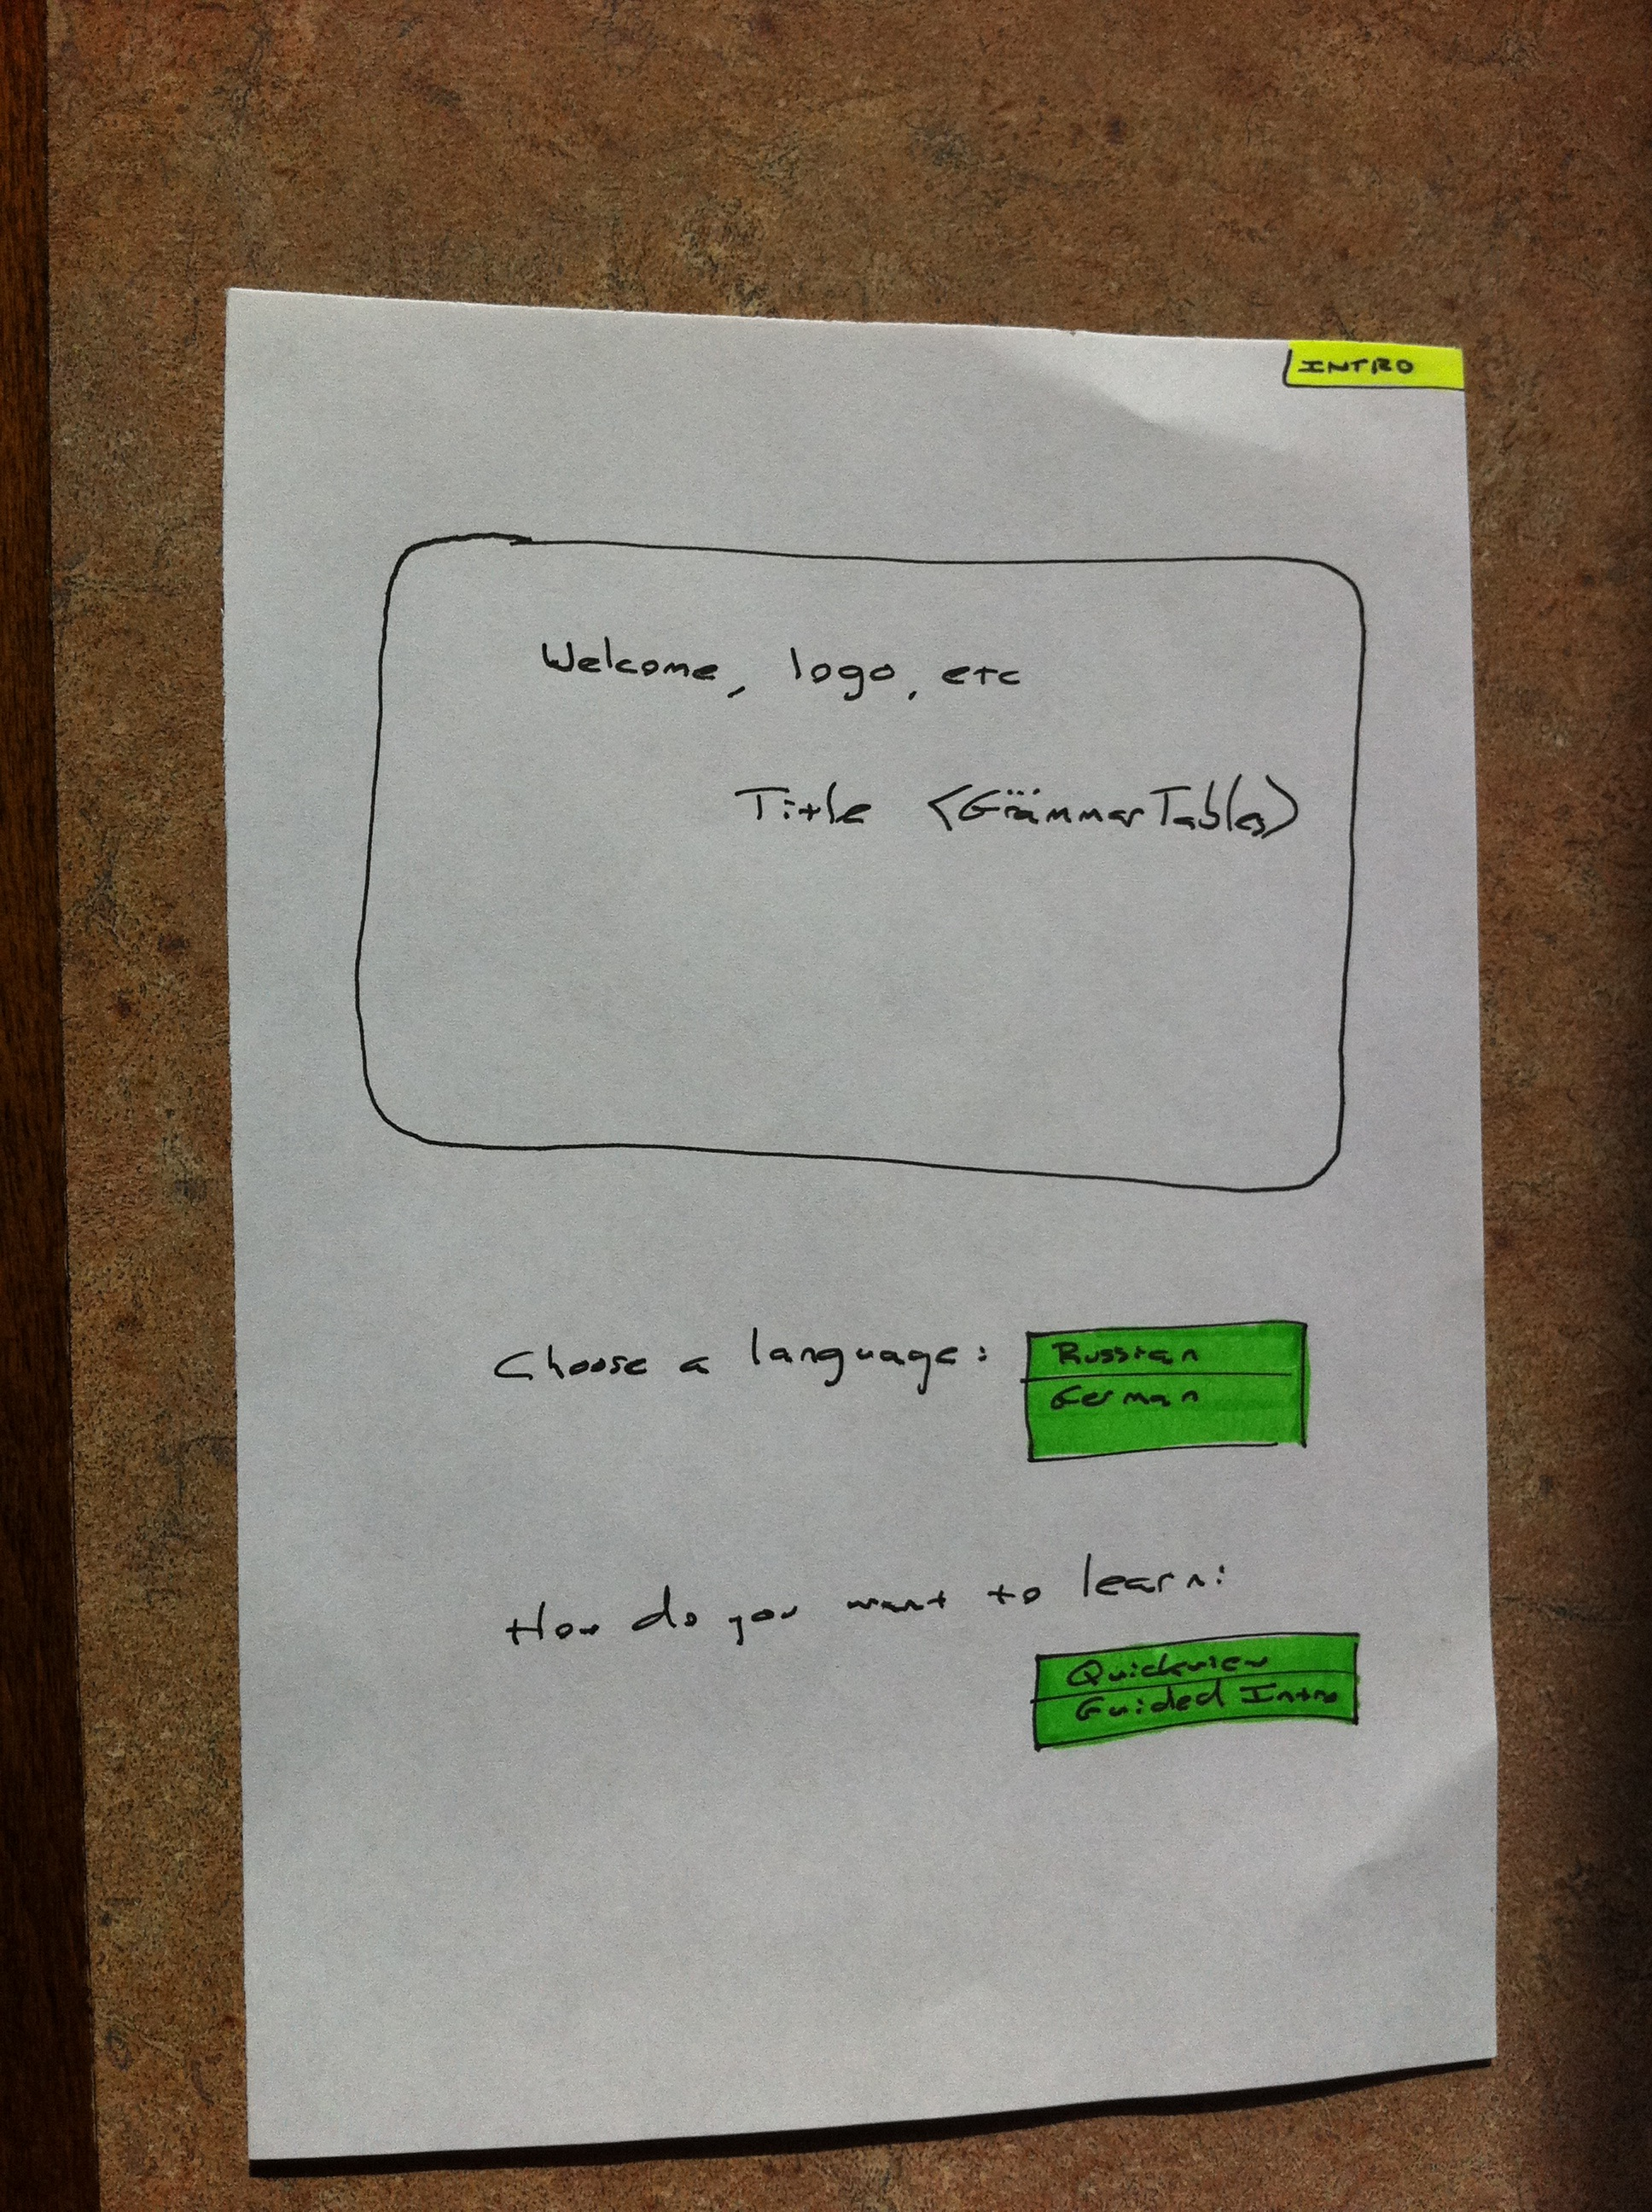 INTRO
Welcome, logo, etc
Title <GrämmarTables>
Choose a language:
Russian
German
How do you want to learn:
Quickview
Guided Intro